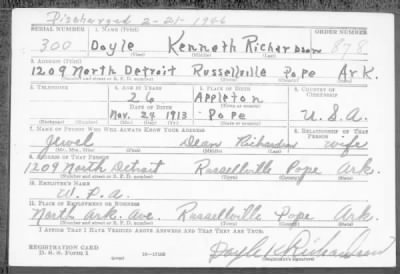 Discharged 2-21-1946
SERIAL NUMBER 1. NAME (Print) ORDER NUMBER
300 Doyle Kenneth Richardson 878
(First) (Middle) (Last)
2. ADDRESS (Print)
1209 North Detroit Russellville Pope Ark.
(Number and street or R. F. D. number) (Town) (County) (State)
3. TELEPHONE 4. AGE IN YEARS 5. PLACE OF BIRTH 6. COUNTRY OF CITIZENSHIP
26 Appleton
DATE OF BIRTH (Town or county)
Nov. 24 1913 Pope U.S.A.
(Exchange) (Number) (Mo.) (Day) (Yr.) (State or country)
7. NAME OF PERSON WHO WILL ALWAYS KNOW YOUR ADDRESS 8. RELATIONSHIP OF THAT PERSON
Jewel Dean Richardson wife
(Mr., Mrs., Miss) (First) (Middle) (Last)
9. ADDRESS OF THAT PERSON
1209 North Detroit Russellville Pope Ark.
(Number and street or R. F. D. number) (Town) (County) (State)
10. EMPLOYER'S NAME
W. P. A.
11. PLACE OF EMPLOYMENT OR BUSINESS
North Ark. Ave. Russellville Pope Ark.
(Number and street or R. F. D. number) (Town) (County) (State)
I AFFIRM THAT I HAVE VERIFIED ABOVE ANSWERS AND THAT THEY ARE TRUE.
REGISTRATION CARD
D. S. S. Form 1 (over) 16-17105 Doyle K Richardson
(Registrant's signature)